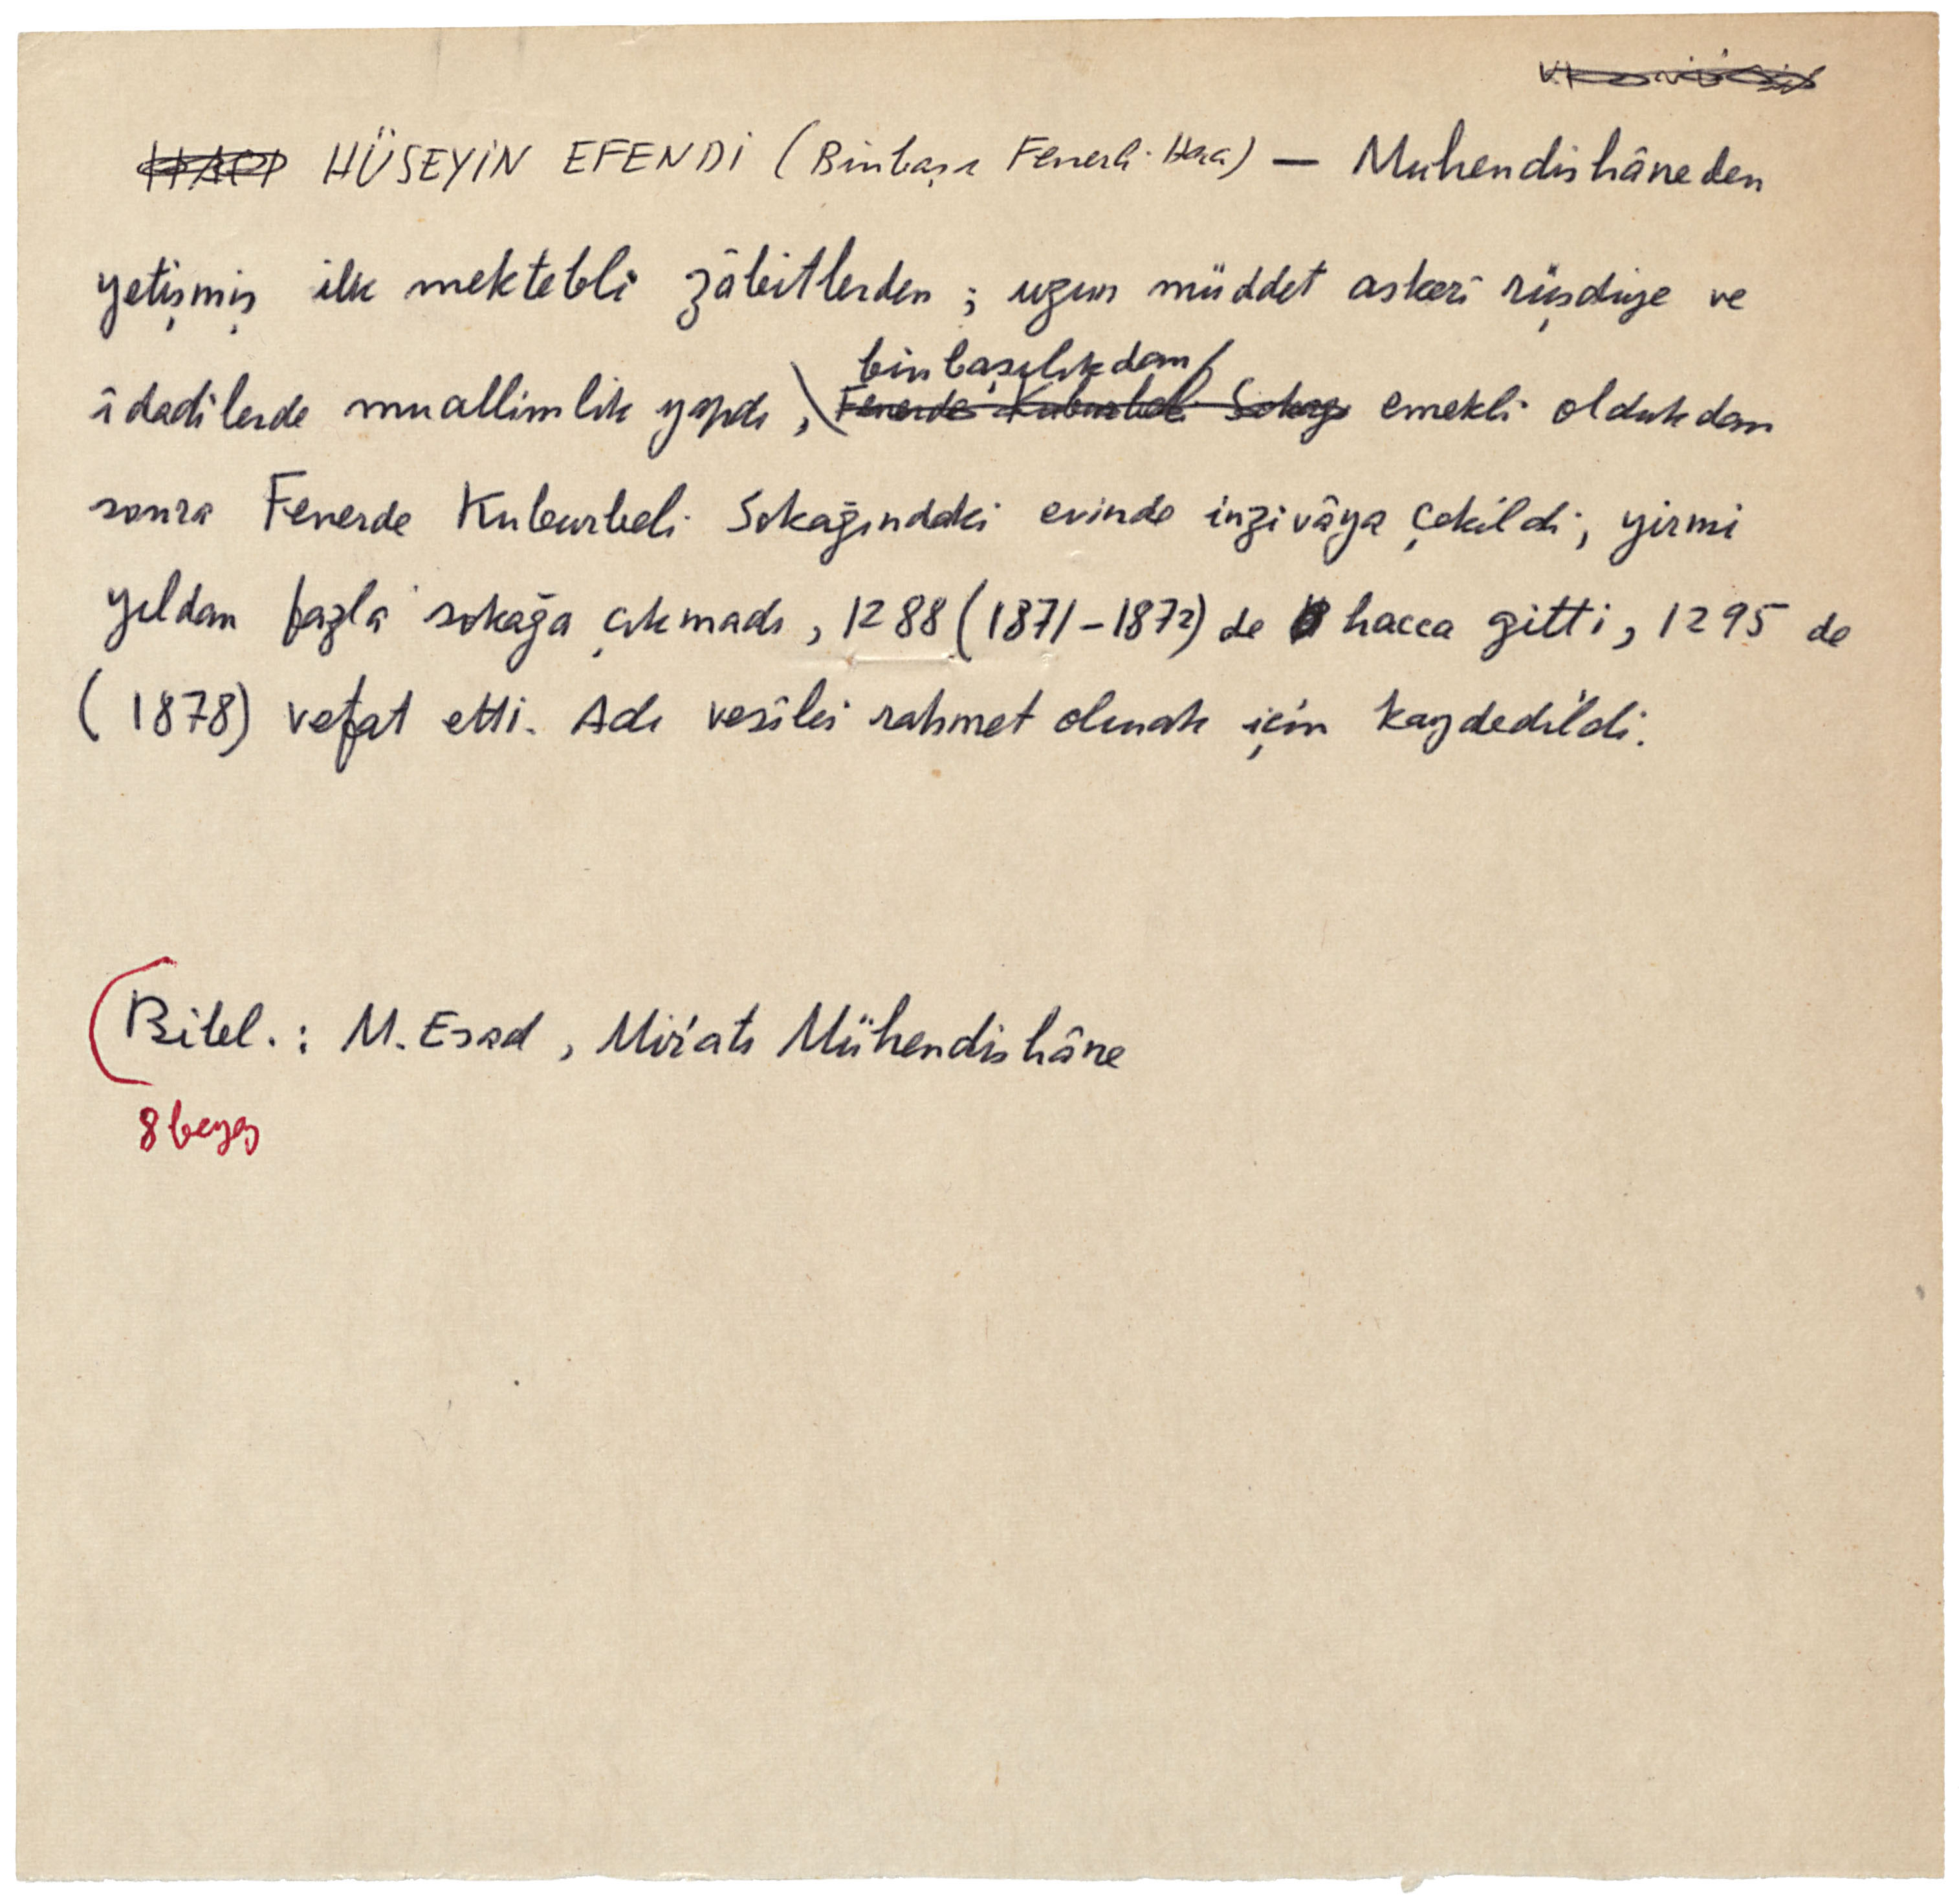 HACI HÜSEYİN EFENDİ (Binbaşı Fenerli Hacı) — Muhendishâneden
yetişmiş ilk mektebli zâbitlerden ; uzun müddet askerî rüşdiye ve
binbaşılıkdan
îdadîlerde muallimlik yapdı, Fenerde Kuburbeli Sokağı emekli oldukdan
sonra Fenerde Kuburbeli Sokağındaki evinde inzivâya çekildi, yirmi
yıldan fazla sokağa çıkmadı, 1288 (1871-1872) de hacca gitti, 1295 de
(1878) vefat etti. Adı vesîlei rahmet olmak için kaydedildi.
Bibl. : M. Esad, Mir'atı Mühendishâne
8 beyaz